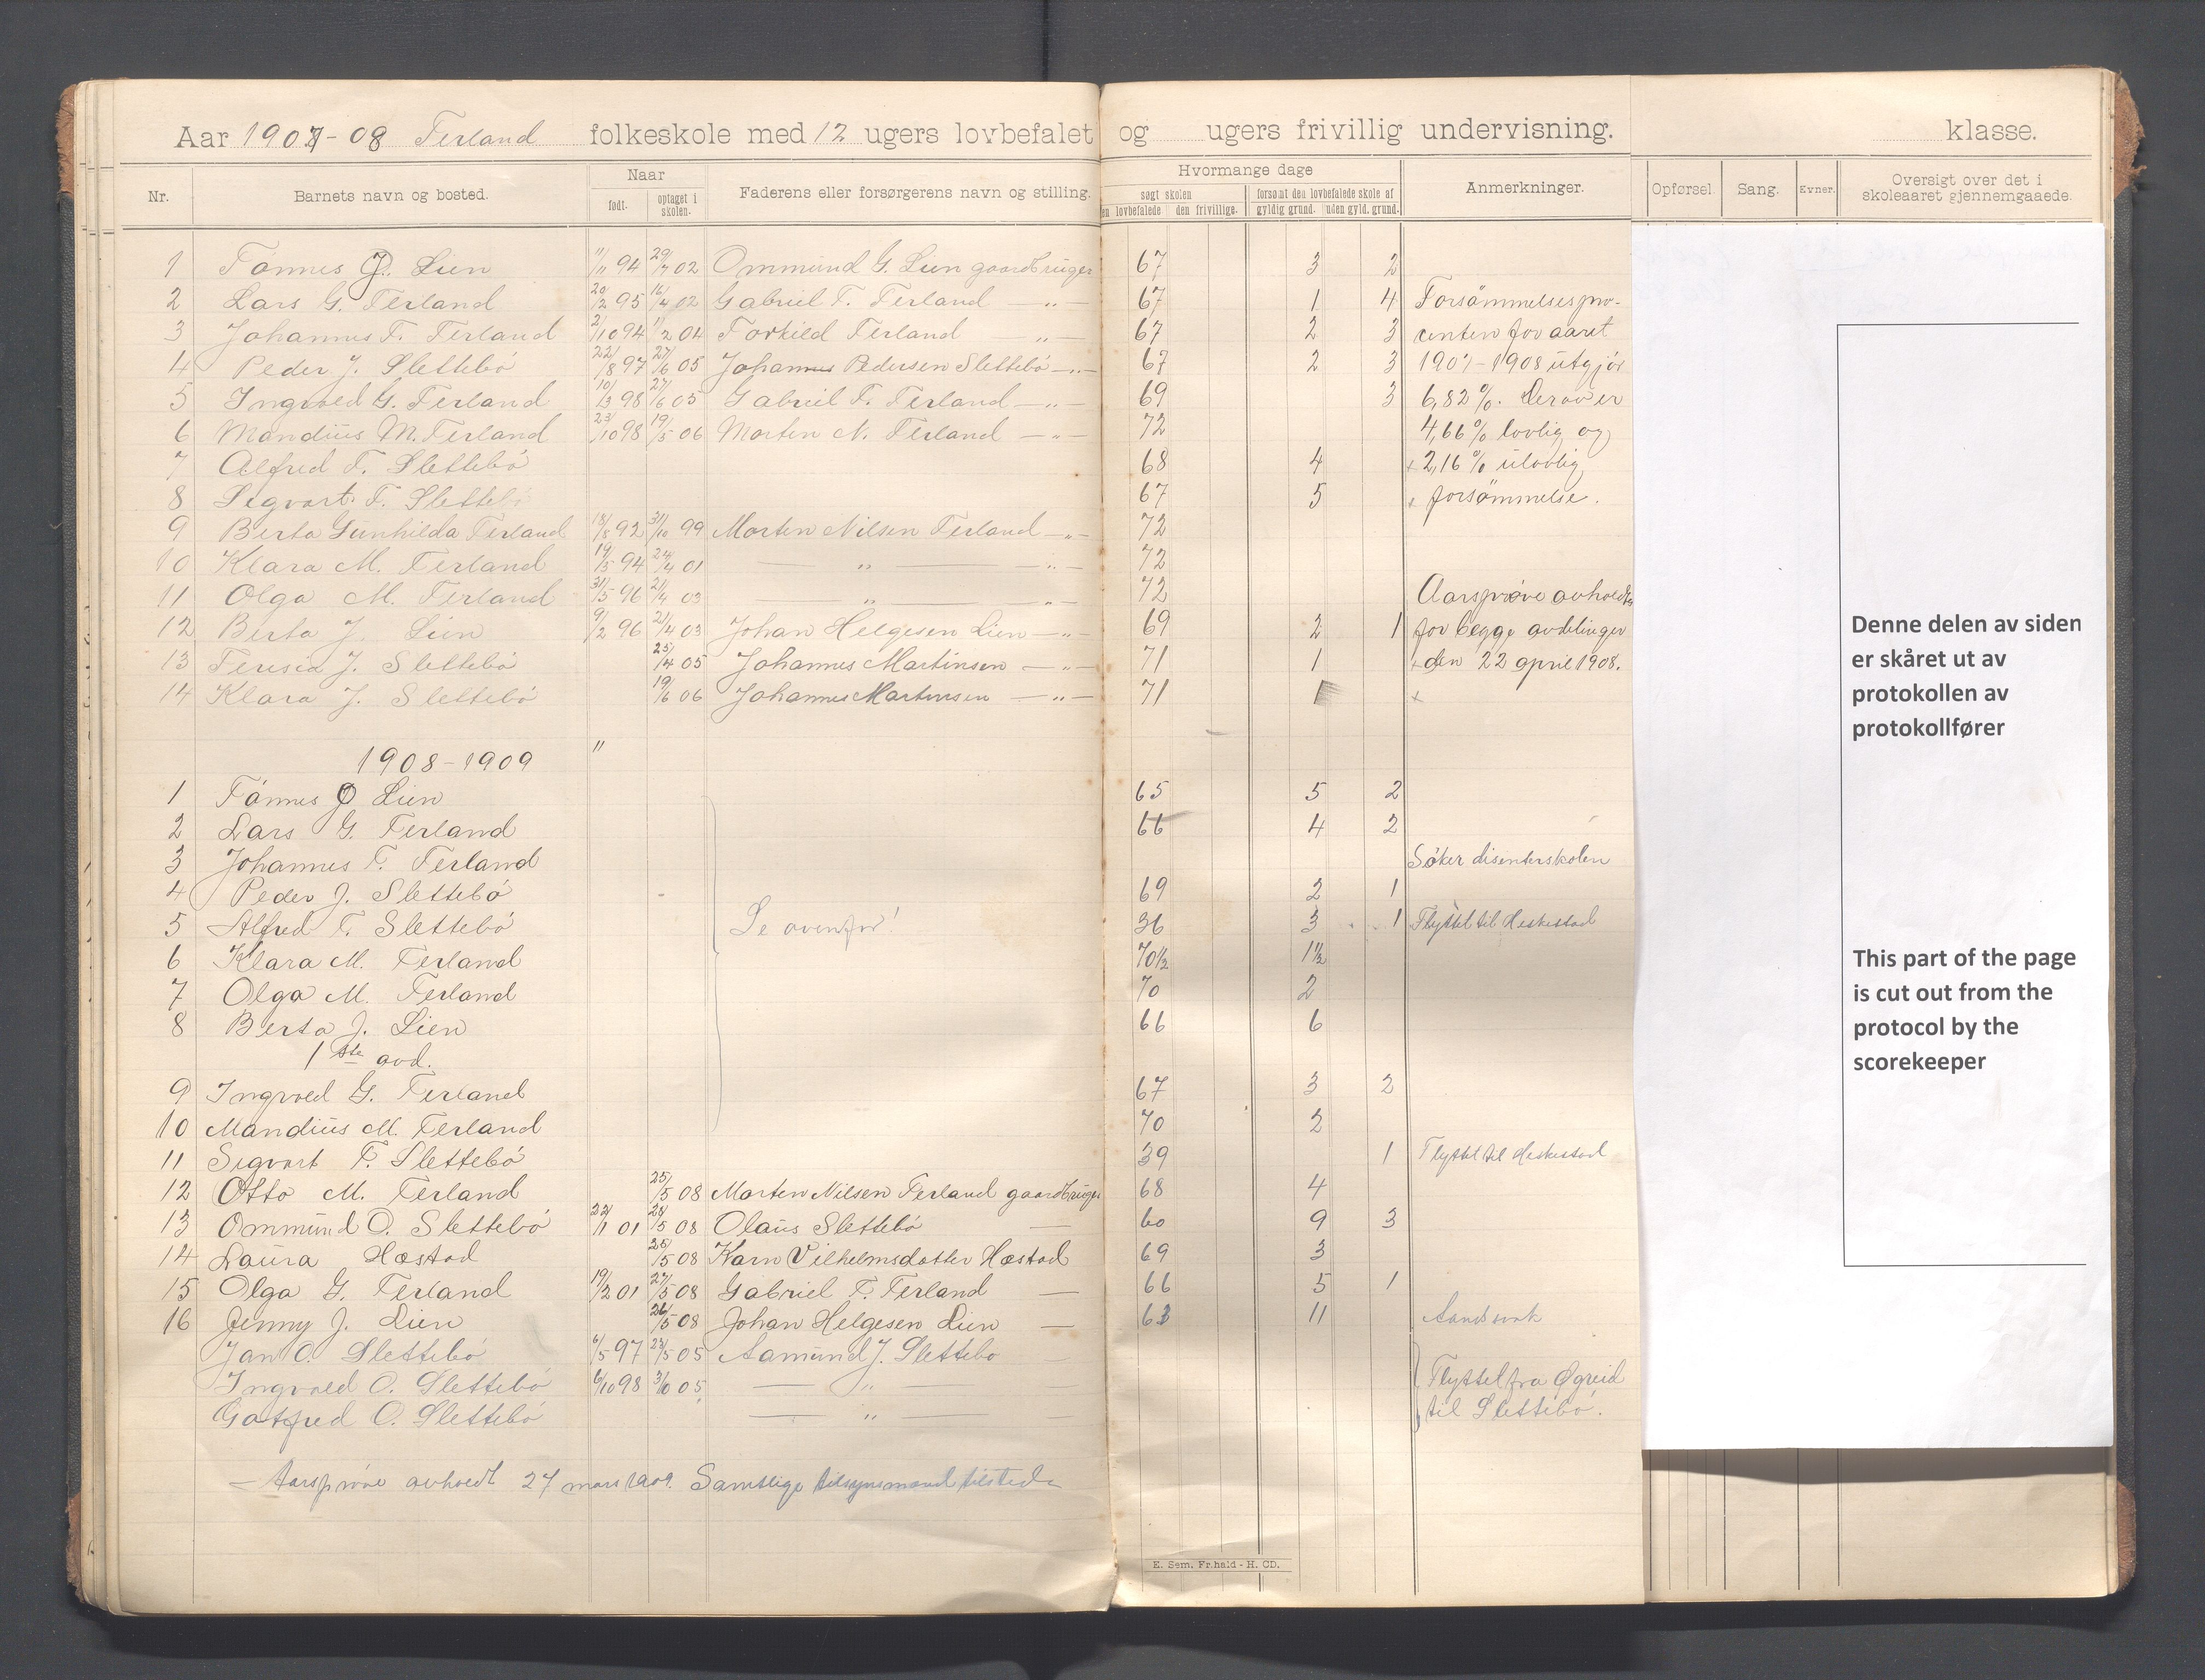 Aar 1907-08 Ferland folkeskole med 12 ugers lovbefalet og ugers frivillig undervisning. klasse.
Nr. Barnets navn og bosted. Naar født. optaget i skolen. Faderens eller forsørgerens navn og stilling. Hvormange dage søgt skolen den lovbefalede den frivillige. forsømt den lovbefalede skole af gyldig grund. uden gyld. grund. Anmerkninger. Opførsel. Sang. Evner. Oversigt over det i skoleaaret gjennemgaaede.
1 Tönnes O. Lien 11/11 94 29/7 02 Ommund G. Lien gaardbruger 67 3 2
2 Lars G. Ferland 20/2 95 16/4 02 Gabriel T. Ferland —"— 67 1 4 Forsömmelsespro-
3 Johannes T. Ferland 2/10 94 1/2 04 Torkild Ferland —"— 67 2 3 centen for aaret
4 Peder J. Slettebö 22/8 97 27/6 05 Johannes Pedersen Slettebö —"— 67 2 3 1907-1908 utgjör
5 Ingvald G. Ferland 10/3 98 27/6 05 Gabriel T. Ferland —"— 69 3 6,82 %. Derav er
6 Mandius M. Ferland 23/10 98 19/5 06 Morten N. Ferland —"— 72 4,66 % lovlig og
7 Alfred T. Slettebö 68 4 + 2,16 % ulovlig
8 Sigvart T. Slettebö 67 5 + forsömmelse.
9 Berta Gunhilda Ferland 18/8 92 31/10 99 Morten Nilsen Ferland —"— 72
10 Klara M. Ferland 14/5 94 24/4 01 — " — " — 72
11 Olga M. Ferland 31/5 96 21/4 03 — " — " 72 Aarspröve avholdtes
12 Berta J. Lien 9/2 96 21/4 03 Johan Helgesen Lien —"— 69 2 1 for begge avdelinger
13 Teresia J. Slettebö 25/4 05 Johannes Martinsen —"— 71 1 + den 22 april 1908.
14 Klara J. Slettebö 19/6 06 Johannes Martinsen —"— 71 1 +
1908-1909 "
1 Tönnes O Lien 65 5 2
2 Lars G. Ferland 66 4 2
3 Johannes T. Ferland Söker disenterskolen
4 Peder J. Slettebö 69 2 1
5 Alfred T. Slettebö Se ovenfor! 36 3 1 Flyttet til Heskestad
6 Klara M. Ferland 70½ 1½
7 Olga M. Ferland 70 2
8 Berta J. Lien 66 6
1ste avd.
9 Ingvald G. Ferland 67 3 2
10 Mandius M. Ferland 70 2
11 Sigvart T. Slettebö 39 1 Flyttet til Heskestad
12 Otto M. Ferland 25/5 08 Morten Nilsen Ferland gaardbruger 68 4
13 Ommund O. Slettebö 22/1 01 24/5 08 Olaus Slettebö — 60 9 3
14 Laura Hæstad 25/5 08 Karn Vilhelmsdatter Hæstad 69 3
15 Olga G. Ferland 19/2 01 27/5 08 Gabriel T. Ferland — 66 5 1
16 Jenny J. Lien 26/5 08 Johan Helgesen Lien — 63 11 Aandsvak
Jan O. Slettebö 6/5 97 23/5 05 Aamund J. Slettebö —
Ingvald O. Slettebö 6/10 98 3/10 05 — " — Flyttet fra Øgreid
Gotfred O. Slettebö — " — til Slettebö.
Aarspröve avholdt 27 mars 1909. Samtlige tilsynsmænd tilstede
E. Sem. Fr.hald - H. CD.
Denne delen av siden
er skåret ut av
protokollen av
protokollfører
This part of the page
is cut out from the
protocol by the
scorekeeper